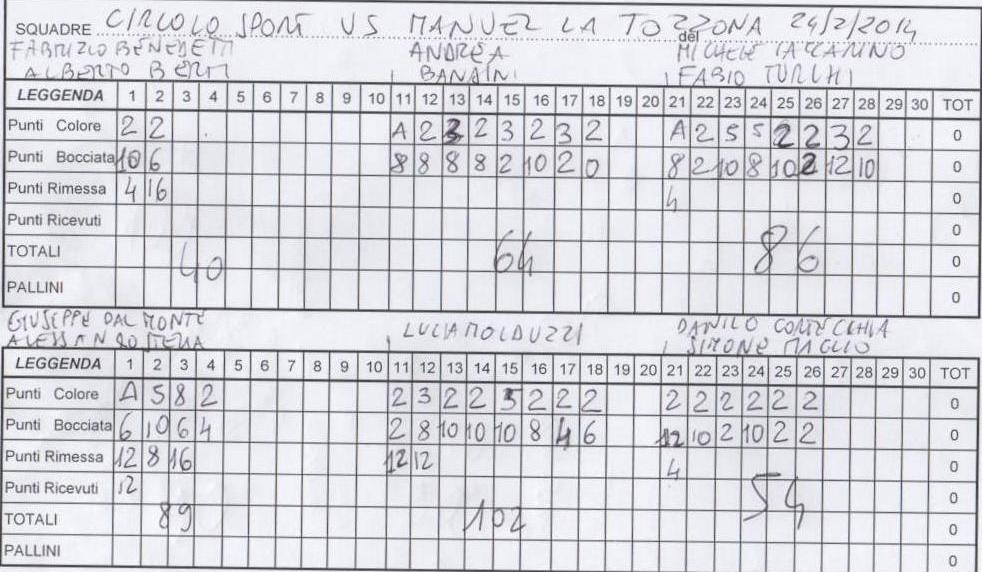 SQUADRE CIRCOLO SPORT VS MANUEL LA TOZZONA del 24/2/2014
FABRIZIO BENEDETTI ANDREA MICHELE
ALBERTO BERTI BANDINI FABIO TURCHI
LEGGENDA 1 2 3 4 5 6 7 8 9 10 11 12 13 14 15 16 17 18 19 20 21 22 23 24 25 26 27 28 29 30 TOT
Punti Colore 2 2 A 2 3 2 3 2 3 2 A 2 5 5 2 2 3 2 0
Punti Bocciata 10 6 8 8 8 8 2 10 2 0 8 2 10 8 10 2 12 10 0
Punti Rimessa 4 16 4 0
Punti Ricevuti 0
TOTALI 40 64 86 0
PALLINI 0
GIUSEPPE DAL MONTE LUCIA MOLDUZZI DANILO
SIMONE MAGLIO
LEGGENDA 1 2 3 4 5 6 7 8 9 10 11 12 13 14 15 16 17 18 19 20 21 22 23 24 25 26 27 28 29 30 TOT
Punti Colore A 5 8 2 2 3 2 2 5 2 2 2 2 2 2 2 2 2 0
Punti Bocciata 6 10 6 4 2 8 10 10 10 8 4 6 12 10 2 10 2 2 0
Punti Rimessa 12 8 16 12 12 4 0
Punti Ricevuti 12 0
TOTALI 89 102 54 0
PALLINI 0